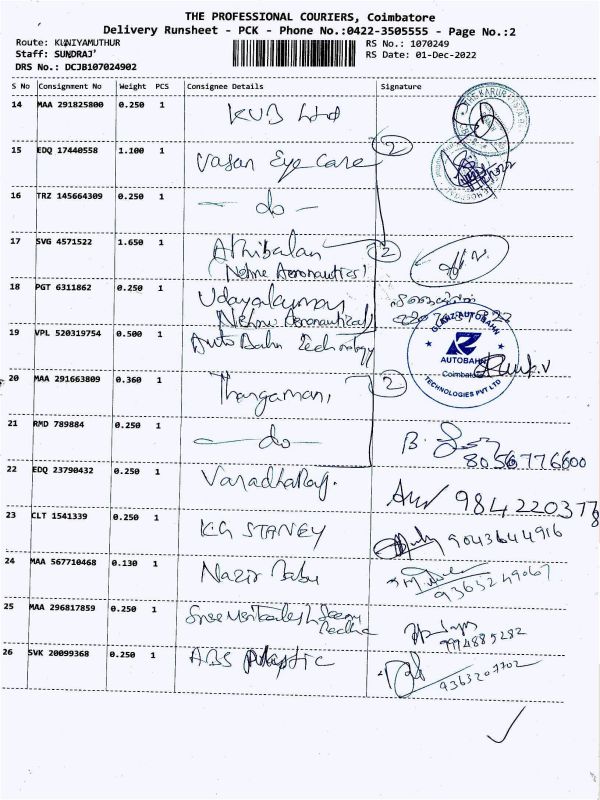 THE PROFESSIONAL COURIERS, Coimbatore
Delivery Runsheet - PCK - Phone No.:0422-3505555 - Page No.:2
Route: KUNIYAMUTHUR RS No.: 1070249
Staff: SUNDRAJ' RS Date: 01-Dec-2022
DRS No.: DCJB107024902
S No Consignment No Weight PCS Consignee Details Signature
14 MAA 291825800 0.250 1 KVB Ltd
15 EDQ 17440558 1.100 1 Vasan Eye Care 2
16 TRZ 145664309 0.250 1 — do —
17 SVG 4571522 1.650 1 Athibalan 2
(Nehru Aeronautics)
18 PGT 6311862 0.250 1 Udayakumar
(Nehru Aeronautical)
19 VPL 520319754 0.500 1 Auto Bahn Technology
AUTOBAHN
Coimbatore
TECHNOLOGIES PVT LTD
20 MAA 291663809 0.360 1 Thangamani 2
21 RMD 789884 0.250 1 — do — B.
8056776600
22 EDQ 23790432 0.250 1 Varadharaj. 9842203778
23 CLT 1541339 0.250 1 KG STANEY 9043644916
24 MAA 567710468 0.130 1 Nazir Babu
9363249067
25 MAA 296817859 0.250 1 Sree
9974885282
26 SVK 20099368 0.250 1 ABS
9363207702